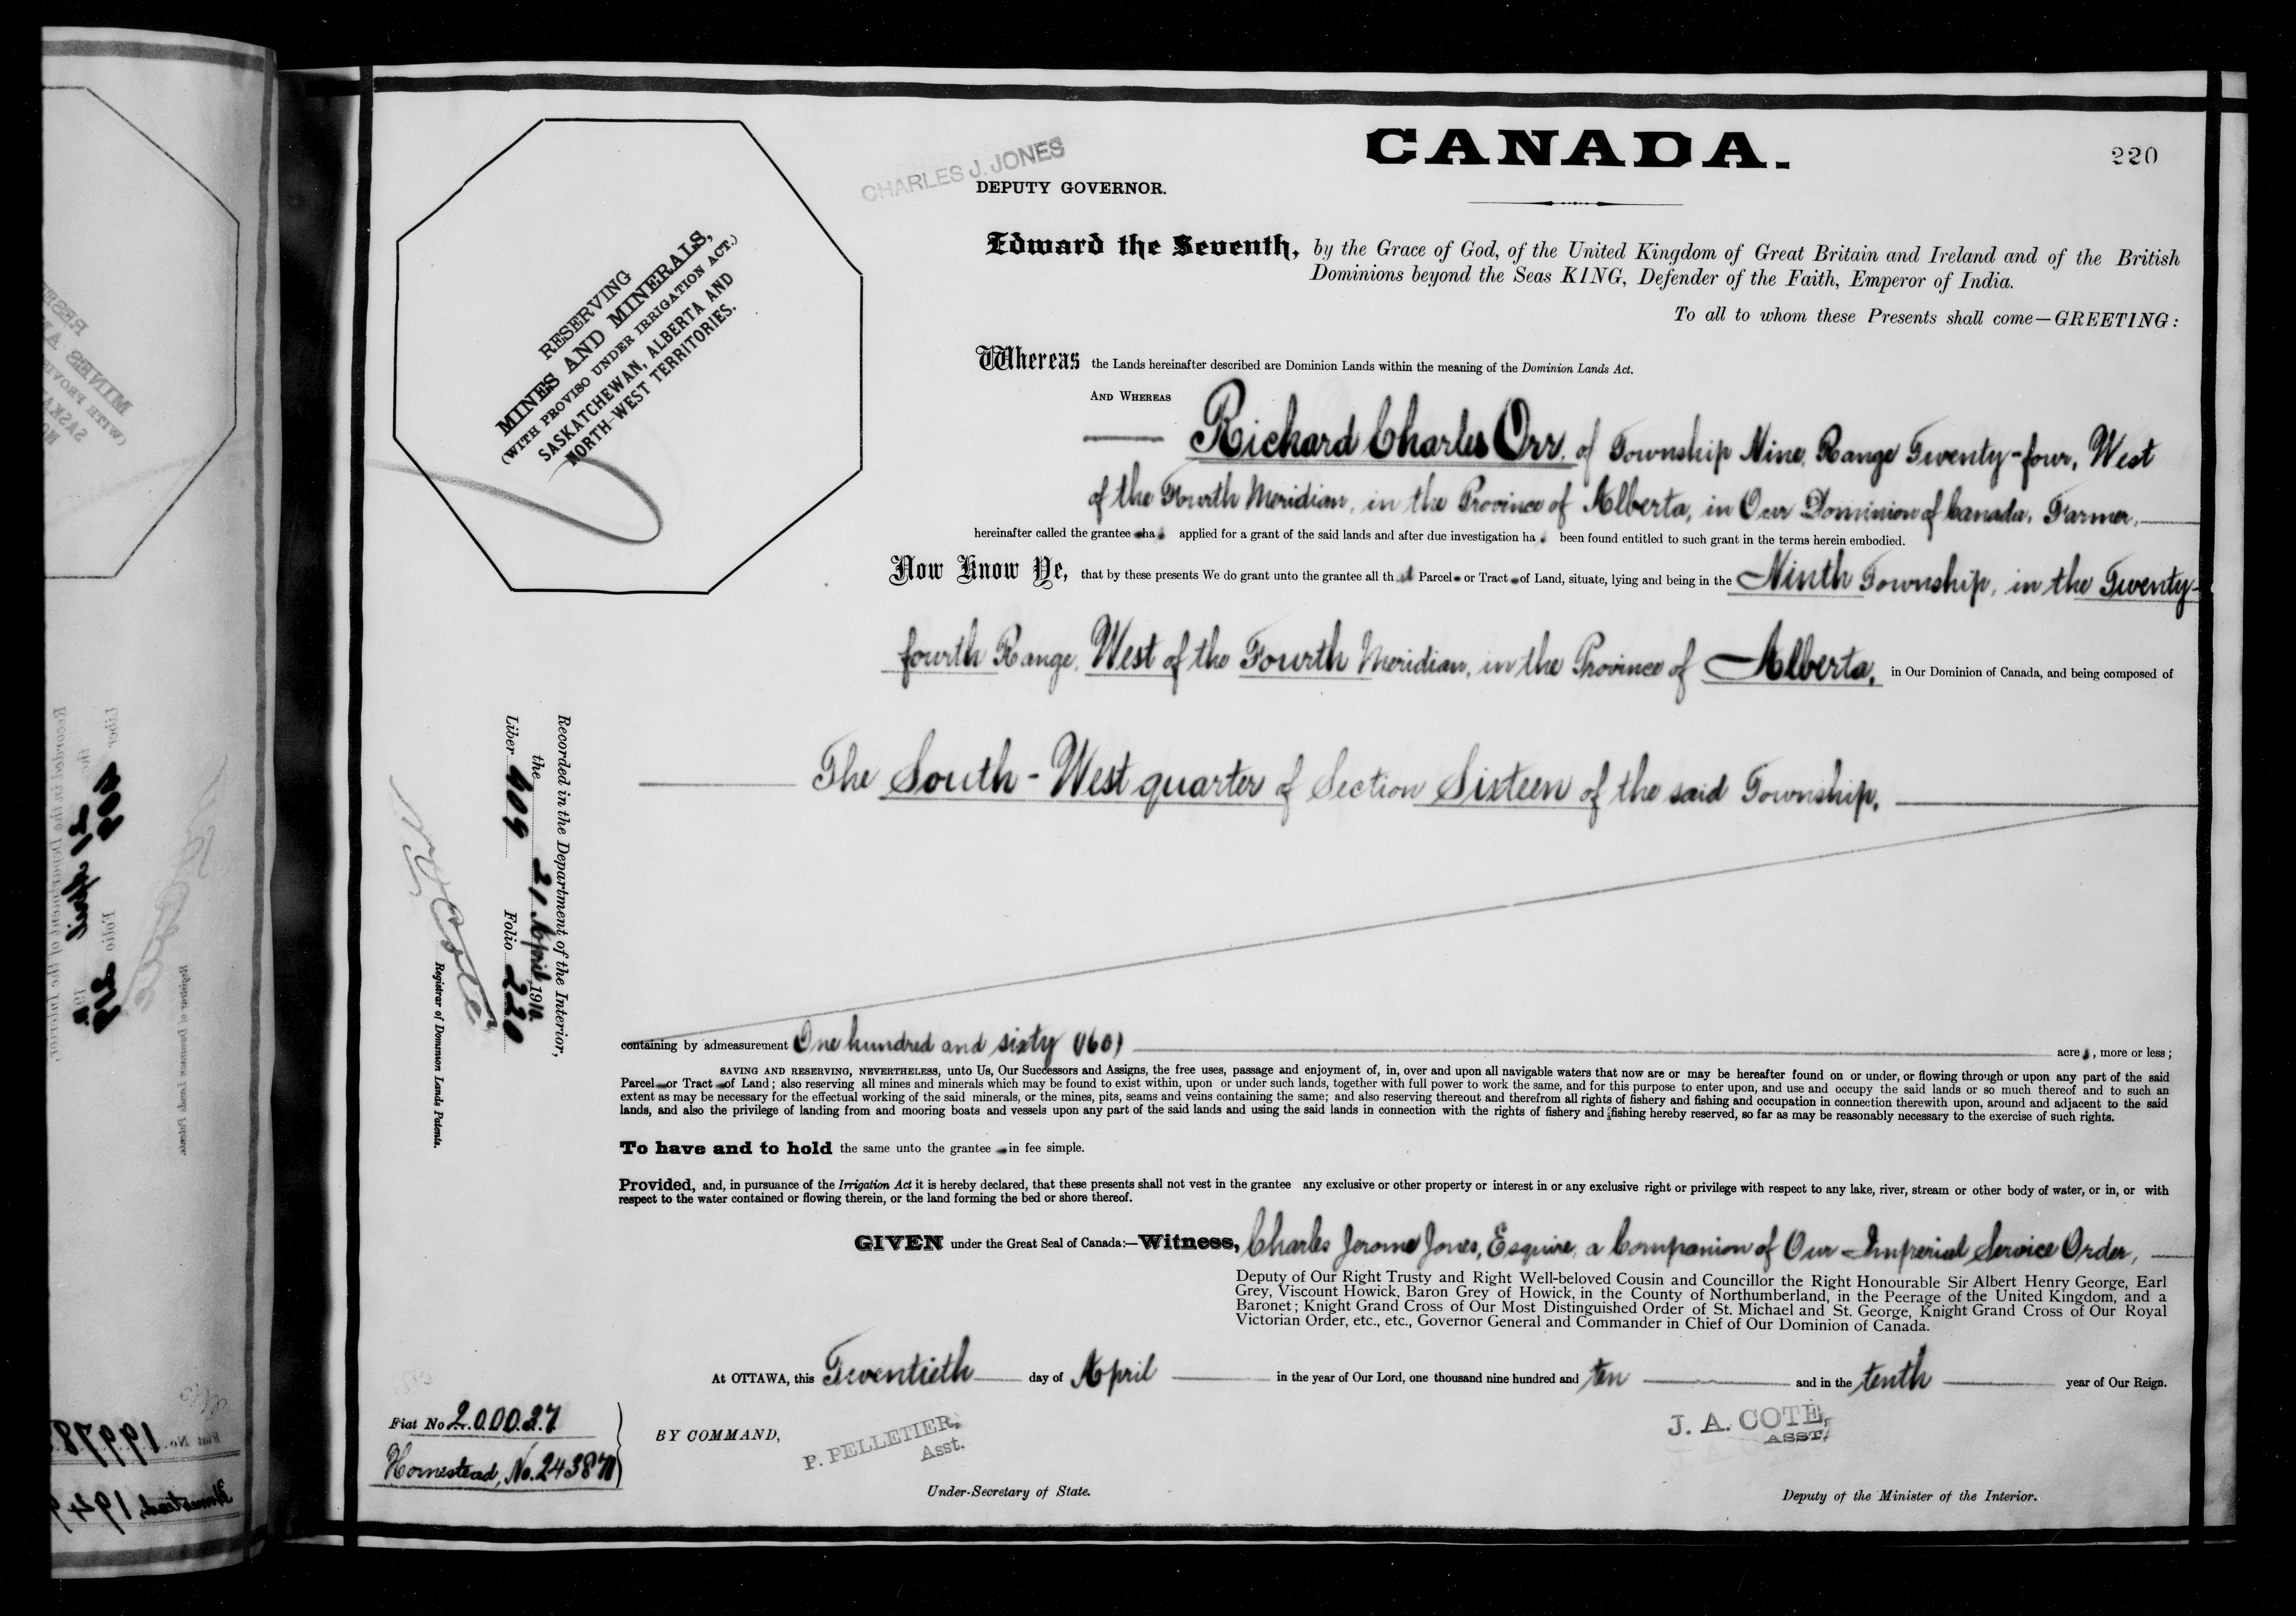 CANADA.
220
CHARLES J. JONES
DEPUTY GOVERNOR.
RESERVING
MINES AND MINERALS,
(WITH PROVISO UNDER IRRIGATION ACT.)
SASKATCHEWAN, ALBERTA AND
NORTH-WEST TERRITORIES.
Edward the Seventh, by the Grace of God, of the United Kingdom of Great Britain and Ireland and of the British
Dominions beyond the Seas KING, Defender of the Faith, Emperor of India.
To all to whom these Presents shall come—GREETING:
Whereas the Lands hereinafter described are Dominion Lands within the meaning of the Dominion Lands Act.
AND WHEREAS
Richard Charles Orr, of Township Nine, Range Twenty-four, West
of the Fourth Meridian, in the Province of Alberta, in Our Dominion of Canada, Farmer,
hereinafter called the grantee has applied for a grant of the said lands and after due investigation has been found entitled to such grant in the terms herein embodied.
Now Know Ye, that by these presents We do grant unto the grantee all that Parcel or Tract of Land, situate, lying and being in the Ninth Township, in the Twenty-
fourth Range, West of the Fourth Meridian, in the Province of Alberta, in Our Dominion of Canada, and being composed of
The South-West quarter of Section Sixteen of the said Township,
Recorded in the Department of the Interior,
the 21 April 1910.
Liber 409 Folio 220
N. O. Coté
Registrar of Dominion Lands Patents.
containing by admeasurement One hundred and sixty (160) acres, more or less;
SAVING AND RESERVING, NEVERTHELESS, unto Us, Our Successors and Assigns, the free uses, passage and enjoyment of, in, over and upon all navigable waters that now are or may be hereafter found on or under, or flowing through or upon any part of the said
Parcel or Tract of Land; also reserving all mines and minerals which may be found to exist within, upon or under such lands, together with full power to work the same, and for this purpose to enter upon, and use and occupy the said lands or so much thereof and to such an
extent as may be necessary for the effectual working of the said minerals, or the mines, pits, seams and veins containing the same; and also reserving thereout and therefrom all rights of fishery and fishing and occupation in connection therewith upon, around and adjacent to the said
lands, and also the privilege of landing from and mooring boats and vessels upon any part of the said lands and using the said lands in connection with the rights of fishery and fishing hereby reserved, so far as may be reasonably necessary to the exercise of such rights.
To have and to hold the same unto the grantee in fee simple.
Provided, and, in pursuance of the Irrigation Act it is hereby declared, that these presents shall not vest in the grantee any exclusive or other property or interest in or any exclusive right or privilege with respect to any lake, river, stream or other body of water, or in, or with
respect to the water contained or flowing therein, or the land forming the bed or shore thereof.
GIVEN under the Great Seal of Canada:—Witness, Charles Jerome Jones, Esquire, a Companion of Our Imperial Service Order,
Deputy of Our Right Trusty and Right Well-beloved Cousin and Councillor the Right Honourable Sir Albert Henry George, Earl
Grey, Viscount Howick, Baron Grey of Howick, in the County of Northumberland, in the Peerage of the United Kingdom, and a
Baronet; Knight Grand Cross of Our Most Distinguished Order of St. Michael and St. George, Knight Grand Cross of Our Royal
Victorian Order, etc., etc., Governor General and Commander in Chief of Our Dominion of Canada.
At OTTAWA, this Twentieth day of April in the year of Our Lord, one thousand nine hundred and ten and in the tenth year of Our Reign.
Fiat No 200027
Homestead, No. 243870
BY COMMAND,
P. PELLETIER,
Asst.
Under-Secretary of State.
J. A. COTE,
ASST.
Deputy of the Minister of the Interior.